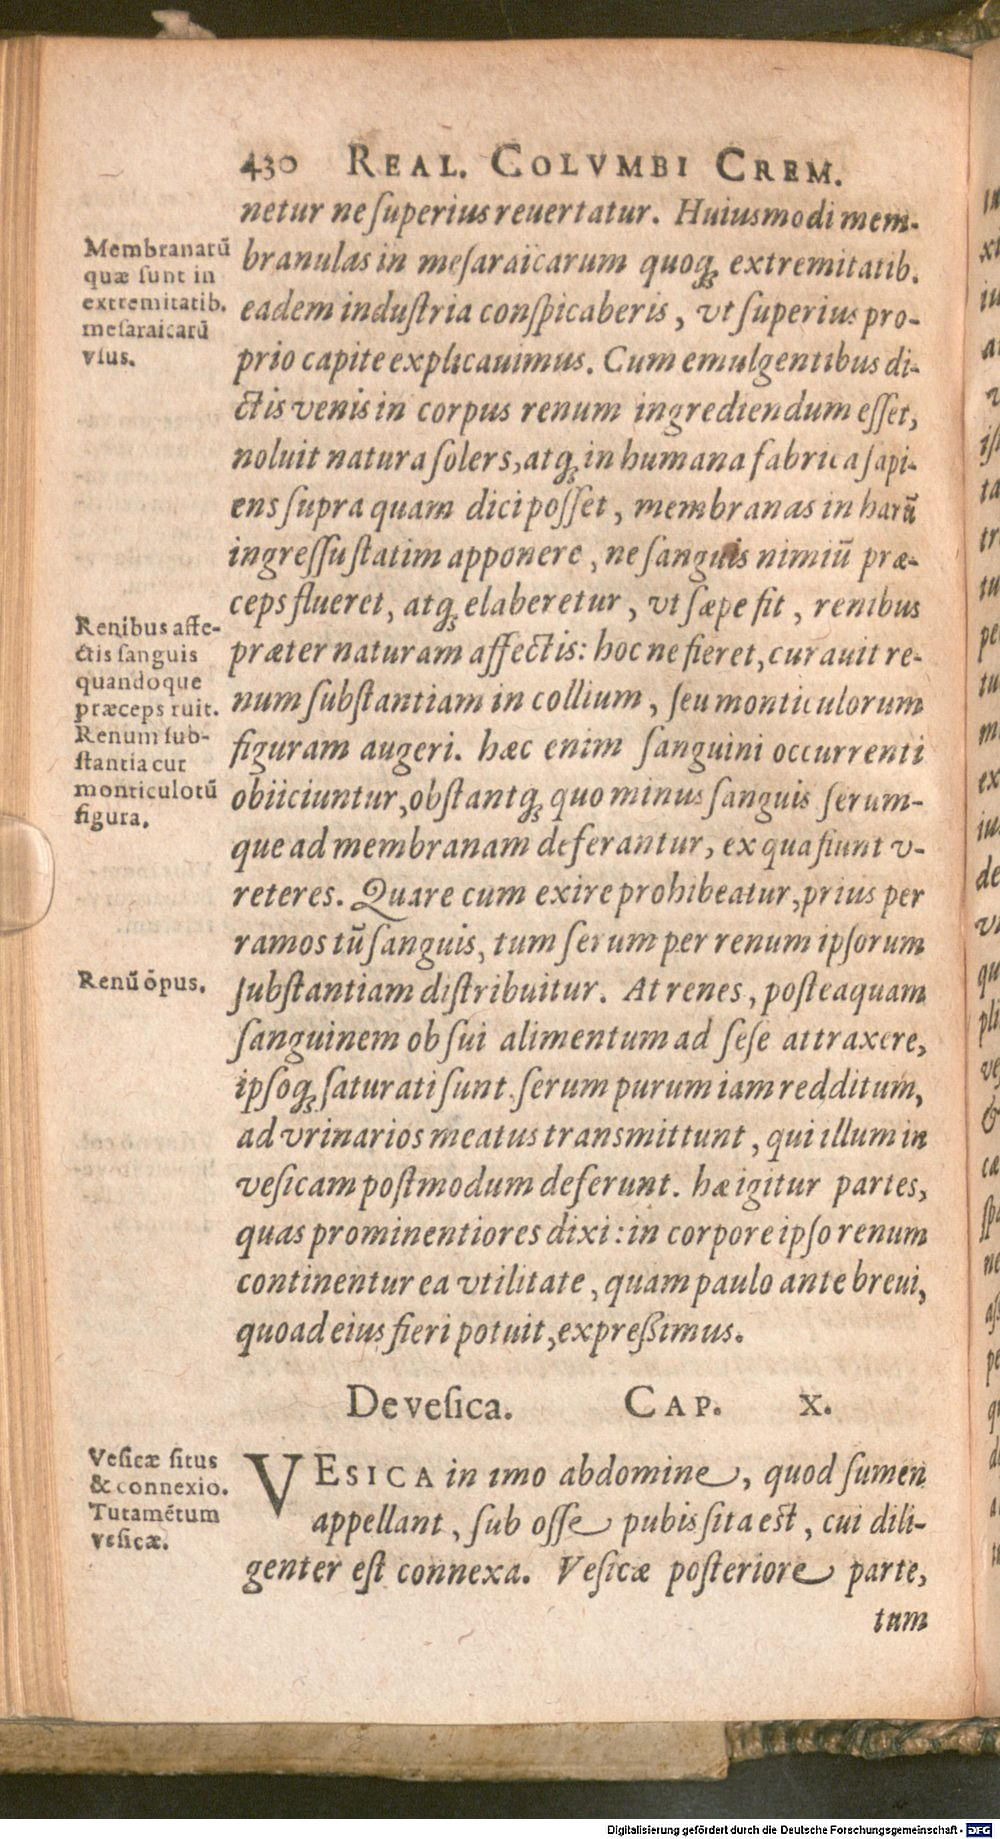 430 REAL. COLVMBI CREM.
netur ne ſuperius reuertatur. Huiusmodi mem-
branulas in meſaraicarum quoq; extremitatib.
eadem induſtria conſpicaberis, vt ſuperius pro-
prio capite explicauimus. Cum emulgentibus di-
ctis venis in corpus renum ingrediendum eſſet,
noluit natura ſolers, atq; in humana fabrica ſapi-
ens ſupra quam dici poſſet, membranas in harū
ingreſſu ſtatim apponere, ne ſanguis nimiū præ-
ceps flueret, atq; elaberetur, vt ſæpe fit, renibus
præter naturam affectis: hoc ne fieret, curauit re-
num ſubſtantiam in collium, ſeu monticulorum
figuram augeri. hæc enim ſanguini occurrenti
obiiciuntur, obſtantq; quo minus ſanguis ſerum-
que ad membranam deferantur, ex qua fiunt v-
reteres. Quare cum exire prohibeatur, prius per
ramos tū ſanguis, tum ſerum per renum ipſorum
ſubſtantiam diſtribuitur. At renes, poſteaquam
ſanguinem ob ſui alimentum ad ſeſe attraxere,
ipſoq; ſaturati ſunt. ſerum purum iam redditum,
ad vrinarios meatus transmittunt, qui illum in
veſicam poſtmodum deferunt. hæ igitur partes,
quas prominentiores dixi: in corpore ipſo renum
continentur ea vtilitate, quam paulo ante breui,
quoad eius fieri potuit, expreßimus.
De veſica. CAP. X.
VESICA in imo abdomine, quod ſumen
appellant, ſub oſſe pubis ſita eſt, cui dili-
genter eſt connexa. Veſicæ poſteriore parte,
tum
Membranarū
quæ ſunt in
extremitatib.
meſaraicarū
vſus.
Renibus affe-
ctis ſanguis
quandoque
præceps ruit.
Renum ſub-
ſtantia cur
monticulorū
figura.
Renū opus.
Veſicæ ſitus
& connexio.
Tutamētum
veſicæ.
Digitalisierung gefördert durch die Deutsche Forschungsgemeinschaft - DFG